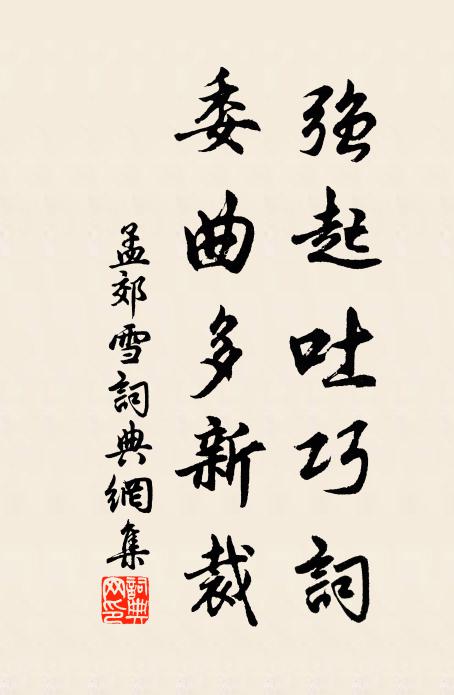 強起吐巧詞
委曲多新裁
孟郊雪詞典網集
詞典
网印